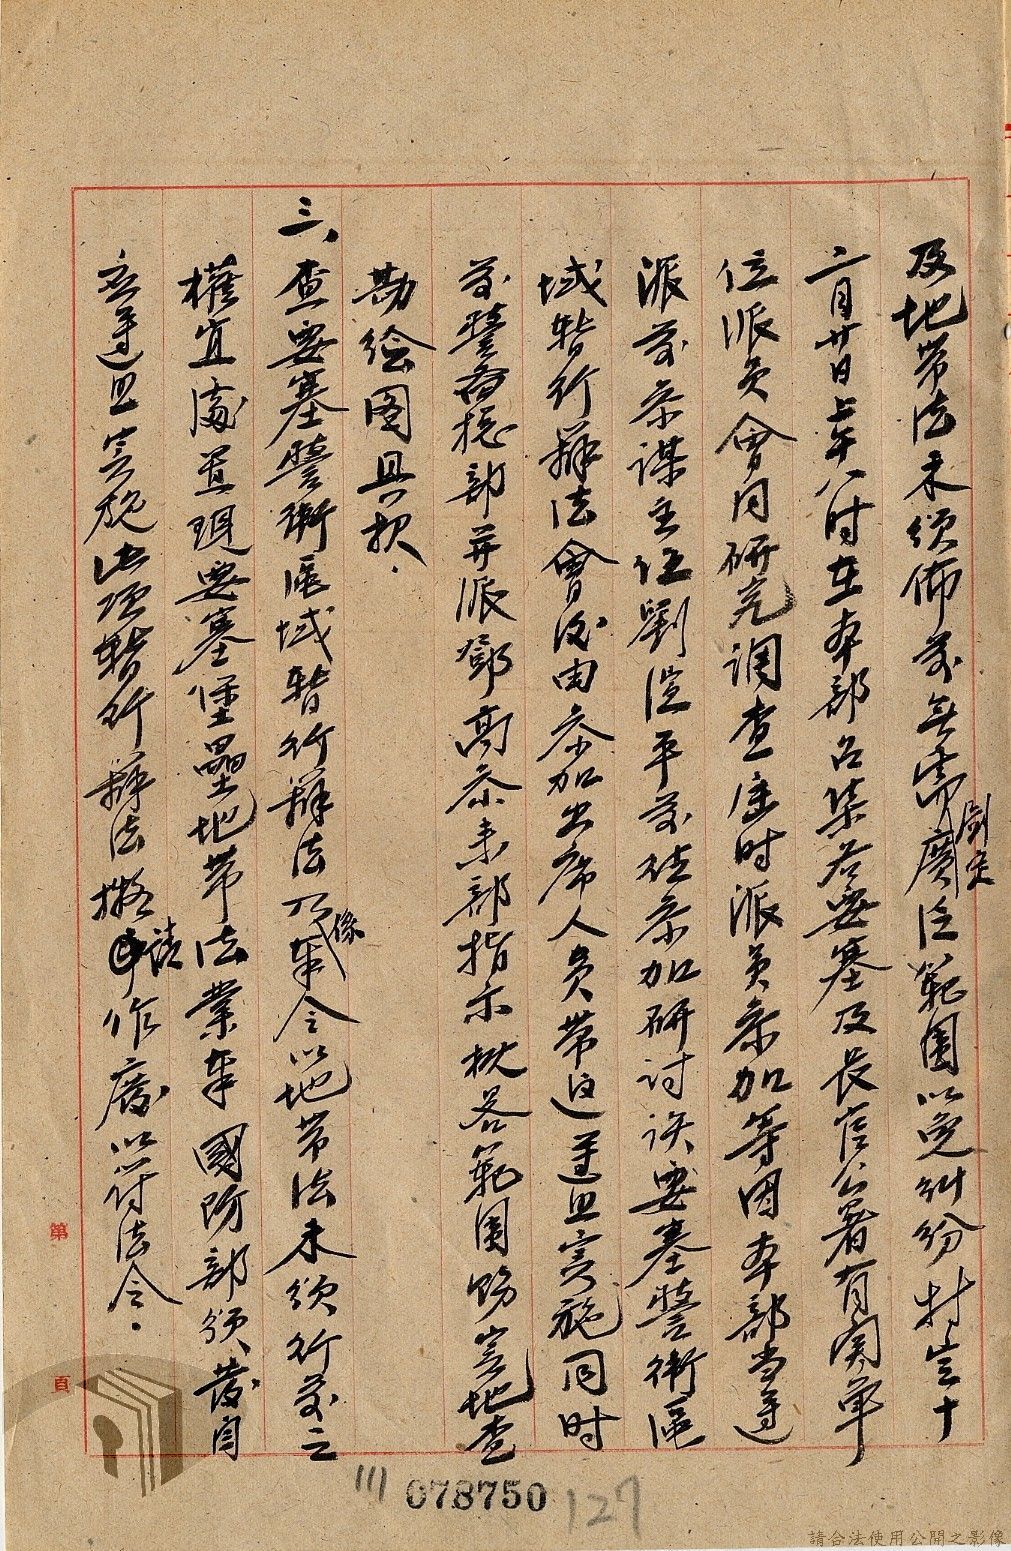 及地帶法未頒佈前無需劃定廣泛範圍以免糾紛特定十
二月廿日上午八时在本部召集各要塞及長官公署有関單
位派員會同研究調查届时派員参加等因本部当遵
派前参謀主任劉淀平前往参加研討該要塞警衛區
域暫行辦法會後由参加出席人員帶返遵且实施同时
前警备總部并派鄧高参来部指示秋各範围防实地查
勘绘图具报．
三、查要塞警衛區域暫行辦法乃係奉令以地帶法未頒行前之
權宜處置現要塞堡壘地帶法業奉 國防部頒發自
应遵且实施此项暫行辦法擬請作廢以符法令．
第 頁
111
078750
127
請合法使用公開之影像